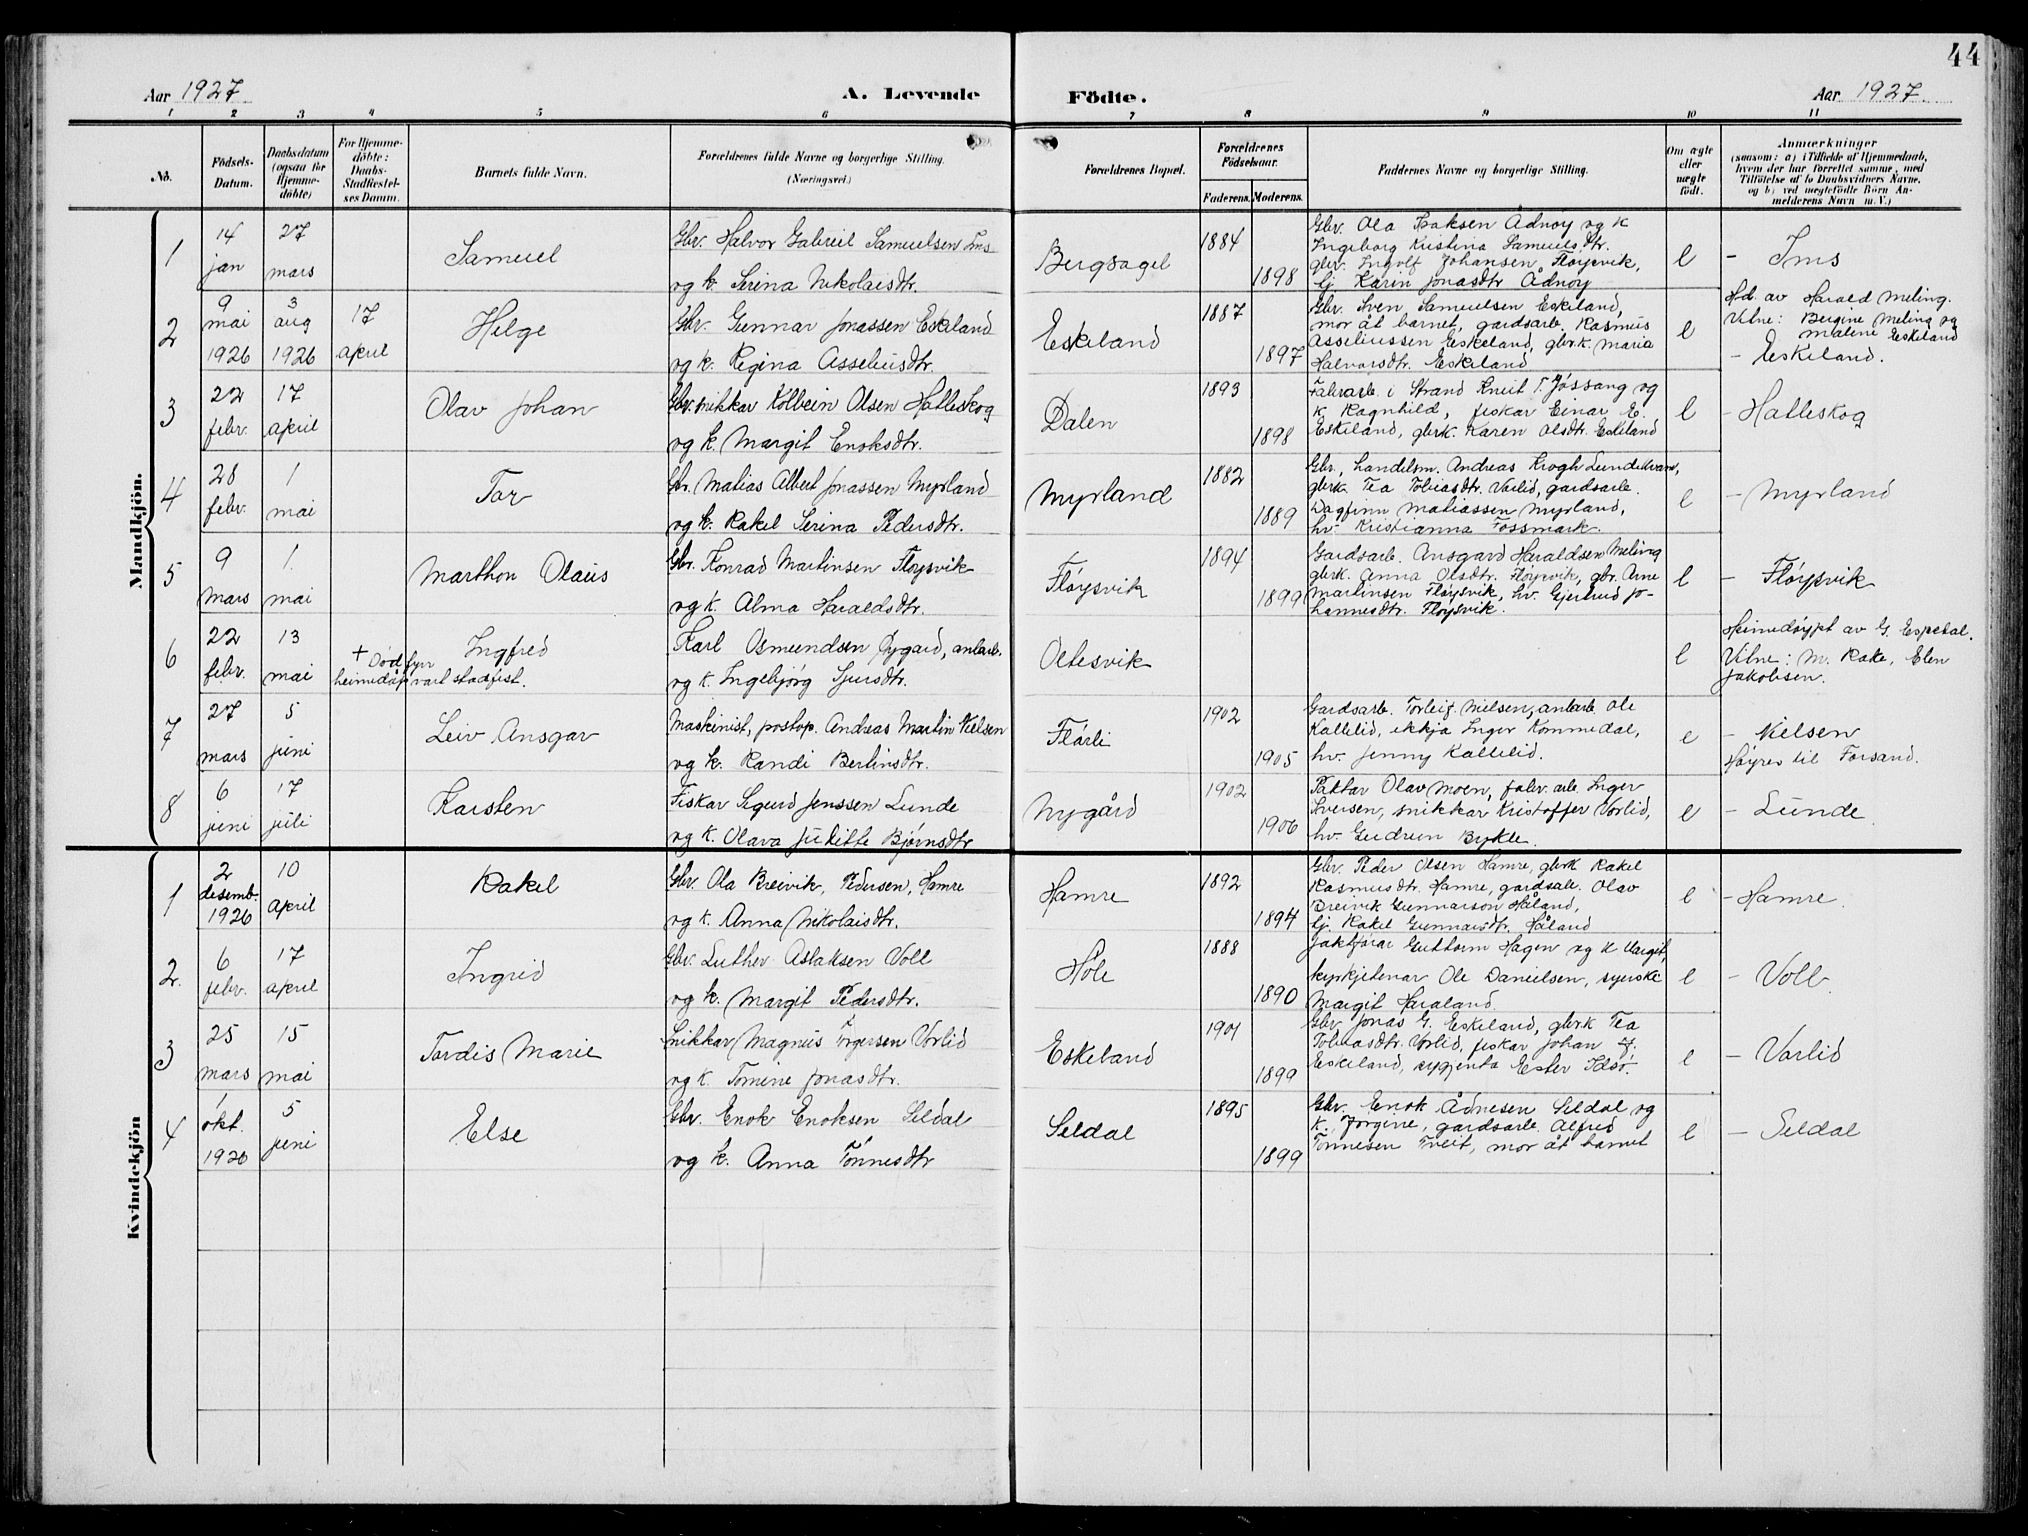 44
Aar 1927 A. Levende Födte. Aar 1927
1 2 3 4 5 6 7 8 9 10 11
No.
Födsels-
Datum.
Daabsdatum
(ogsaa for
Hjemme-
döbte)
For Hjemme-
döbte:
Daabs-
Stadfæstel-
ses Datum.
Barnets fulde Navn.
Forældrenes fulde Navne og borgerlige Stilling.
(Næringsvei.)
Forældrenes Bopæl.
Forældrenes
Födselsaar.
Faderens. Moderens.
Faddernes Navne og borgerlige Stilling.
Om ægte
eller
uægte
födt.
Anmærkninger
(saasom: a) i Tilfælde af Hjemmedaab,
hvem der har forrettet samme, med
Tilföielse af to Daabsvidners Navne,
og b) ved uægtefödte Börn An-
melderens Navn m. V.)
Mandkjön.
1
14
jan
27
mars
Samuel
Gbr. Halvor Gabriel Samuelsen Ims
og k. Serina Nikolaisdtr.
Bergsagel
1884
1898
Gbr. Ola Isaksen Ådnøy og k
Ingeborg Kristina Samuelsdtr.
gbr. Ingolf Johansen Fløysvik,
Gj. Karin Jonasdtr Ådnøy
e
- Ims
2
9
mai
1926
3
aug
1926
17
april
Helge
Gbr. Gunnar Jonassen Eskeland
og k. Regina Asseliusdtr.
Eskeland
1887
1897
Gbr. Sven Samuelsen Eskeland,
mor åt barnet, gardsarb. Rasmus
Asseliussen Eskeland, gbrk. Maria
Halvorsdtr. Eskeland
e
Hd. av Harald Meling.
Vitne: Bergine Meling og
Malene Eskeland
- Eskeland.
3
22
febr.
17
april
Olav Johan
Gbr. snikkar Kolbein Olsen Halleskog
og k. Margit Enoksdtr.
Dalen
1893
1898
Fabrarb. i Strand Knut T. Jøssang og
k. Ragnhild, fiskar Einar E.
Eskeland, gbrk. Karen Olsdtr. Eskeland
e
- Halleskog
4
28
febr.
1
mai
Tor
Gbr. Matias Albert Jonassen Myrland
og k. Rakel Serina Pedersdtr.
Myrland
1882
1889
Gbr., handelsm. Andreas Krogh Lundekvam,
gbrk. Tea Tobiasdtr. Varlid, gardsarb.
Dagfinn Matiassen Myrland,
hv. Kristianna Fossmark.
e
- Myrland
5
9
mars
1.
mai
Marthon Olaus
Gbr. Konrad Martinsen Fløysvik
og k. Alma Haraldsdtr.
Fløysvik
1894
1899
Gardsarb. Ansgard Haraldsen Meling
gbrk. Anna Olsdtr. Fløysvik, gbr. Arne
Martinsen Fløysvik, hv. Gjertrud Jo-
hannesdtr. Fløysvik.
e
- Fløysvik
6
22
febr.
13
mai
+ Død fyrr
heimedåp vart stadfest.
Ingfred
Karl Osmundsen Nygard, anlarb.
og k. Ingebjørg Sjursdtr.
Oltesvik
e
Heimedøypt av G. Espedal.
Vitne: M. Rake, Elen
Jakobsen.
7
27
mars
5
juni
Leiv Ansgar
Maskinist, postop. Andreas Martin Nielsen
og k. Randi Berlinsdtr.
Flørli
1902
1905
Gardsarb. Torleif Nielsen, anlarb. Ole
Kallelid, ekkja Inger Kommedal,
hv. Jenny Kallelid.
e
- Nielsen
Høyrer til Forsand.
8
6
juni
17
juli
Karsten
Fiskar Sigurd Jenssen Lunde
og k. Olava Juditte Bjørnsdtr
Nygård
1902
1906
Pakkar Olav Moen, fabr. arb. Inger
Iversen, snikkar Kristoffer Vorlid,
hv. Gudrun Bykle.
e
- Lunde
Kvindekjön
1
2
desemb.
1926
10
april
Rakel
Gbr. Ola Breivik, Pedersen, Hamre
og k. Anna Nikolaisdtr.
Hamre
1892
1894
Gbr. Peder Olsen Hamre, gbrk Rakel
Rasmusdtr. Hamre, gardsarb. Olav
Breivik Gunnarson Håland,
Gj. Rakel Gunnarsdtr. Håland
e
- Hamre.
2.
6
febr.
17
april
Ingrid
Gbr. Luther Aslaksen Voll
og k. Margit Pedersdtr.
Høle
1888
1890
Jaktførar Guttorm Hagen og k Margit,
kyrkjetenar Ole Danielsen, syerske
Margit Haraland.
e
- Voll
3
25
mars
15
mai
Tordis Marie
Snikkar Magnus Torgersen Vorlid
og k. Tomine Jonasdtr.
Eskeland
1901
1899
Gbr. Jonas G. Eskeland, gbrk Tea
Tobiasdtr. Vorlid, fiskar Johan J.
Eskeland, sygjenta Ester Idsø.
e
- Varlid
4
1
okt.
1926
5
juni
Else
Gbr. Enok Enoksen Seldal
og k. Anna Tønnesdtr
Seldal
1895
1899
Gbr. Enok Ådnesen Seldal og
k. Jorgine, gardsarb. Alfred
Tønnesen Tveit, mor åt barnet
e
- Seldal